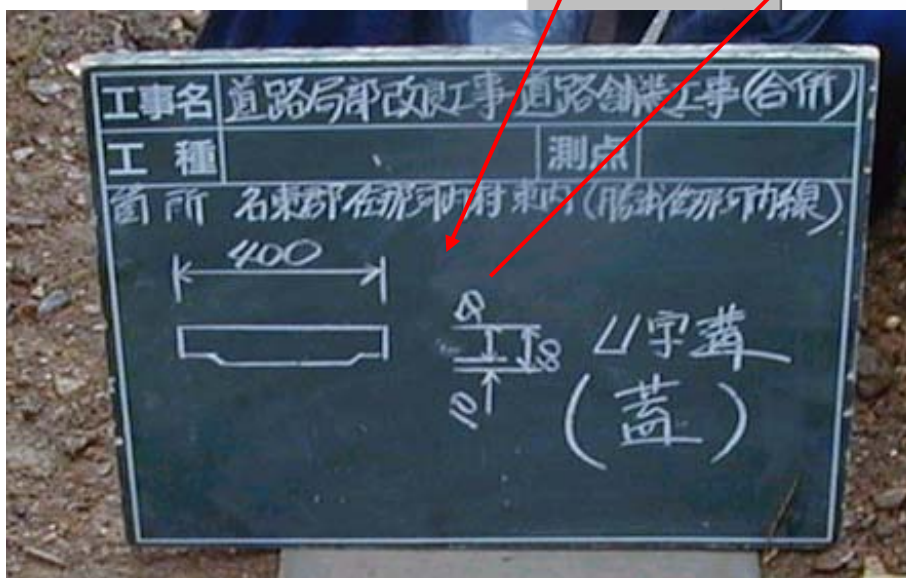 工事名 道路局部改良工事・道路舗装工事(合併)
工種 測点
箇所 名東郡佐那河内村 (勝浦佐那河内線)
400
8
10
U字溝
(蓋)